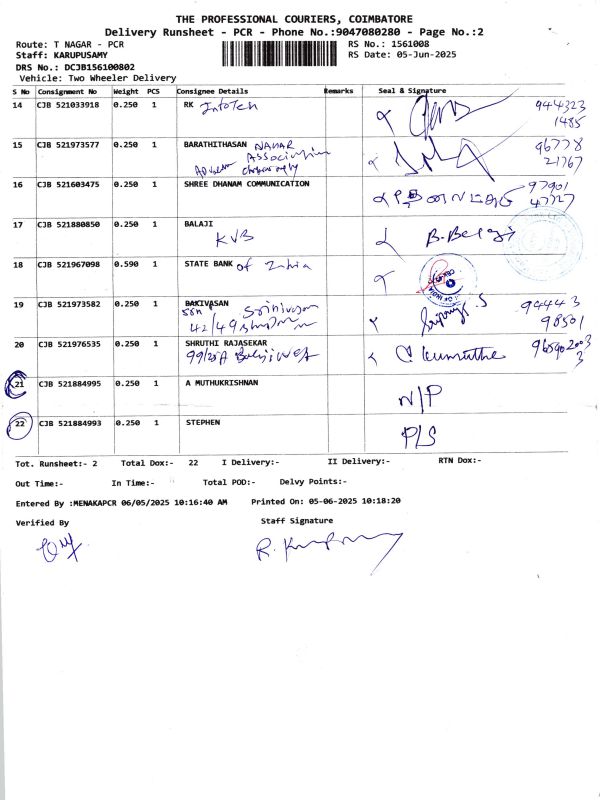 THE PROFESSIONAL COURIERS, COIMBATORE
Delivery Runsheet - PCR - Phone No.:9047080280 - Page No.:2
Route: T NAGAR - PCR RS No.: 1561008
Staff: KARUPUSAMY RS Date: 05-Jun-2025
DRS No.: DCJB156100802
Vehicle: Two Wheeler Delivery
S No Consignment No Weight PCS Consignee Details Remarks Seal & Signature
14 CJB 521033918 0.250 1 RK InfoTech 944323
1485
15 CJB 521973577 0.250 1 BARATHITHASAN NAHAR 96778
Association 21767
16 CJB 521603475 0.250 1 SHREE DHANAM COMMUNICATION 97901
47727
17 CJB 521880850 0.250 1 BALAJI
KVB B. Balaji
18 CJB 521967098 0.590 1 STATE BANK of India
19 CJB 521973582 0.250 1 BAKIVASAN Srinivasan 94443
42/49 98501
20 CJB 521976535 0.250 1 SHRUTHI RAJASEKAR
99/25A Balaji
21 CJB 521884995 0.250 1 A MUTHUKRISHNAN
N/P
22 CJB 521884993 0.250 1 STEPHEN
P/S
Tot. Runsheet:- 2 Total Dox:- 22 I Delivery:- II Delivery:- RTN Dox:-
Out Time:- In Time:- Total POD:- Delvy Points:-
Entered By :MENAKAPCR 06/05/2025 10:16:40 AM Printed On: 05-06-2025 10:18:20
Verified By Staff Signature